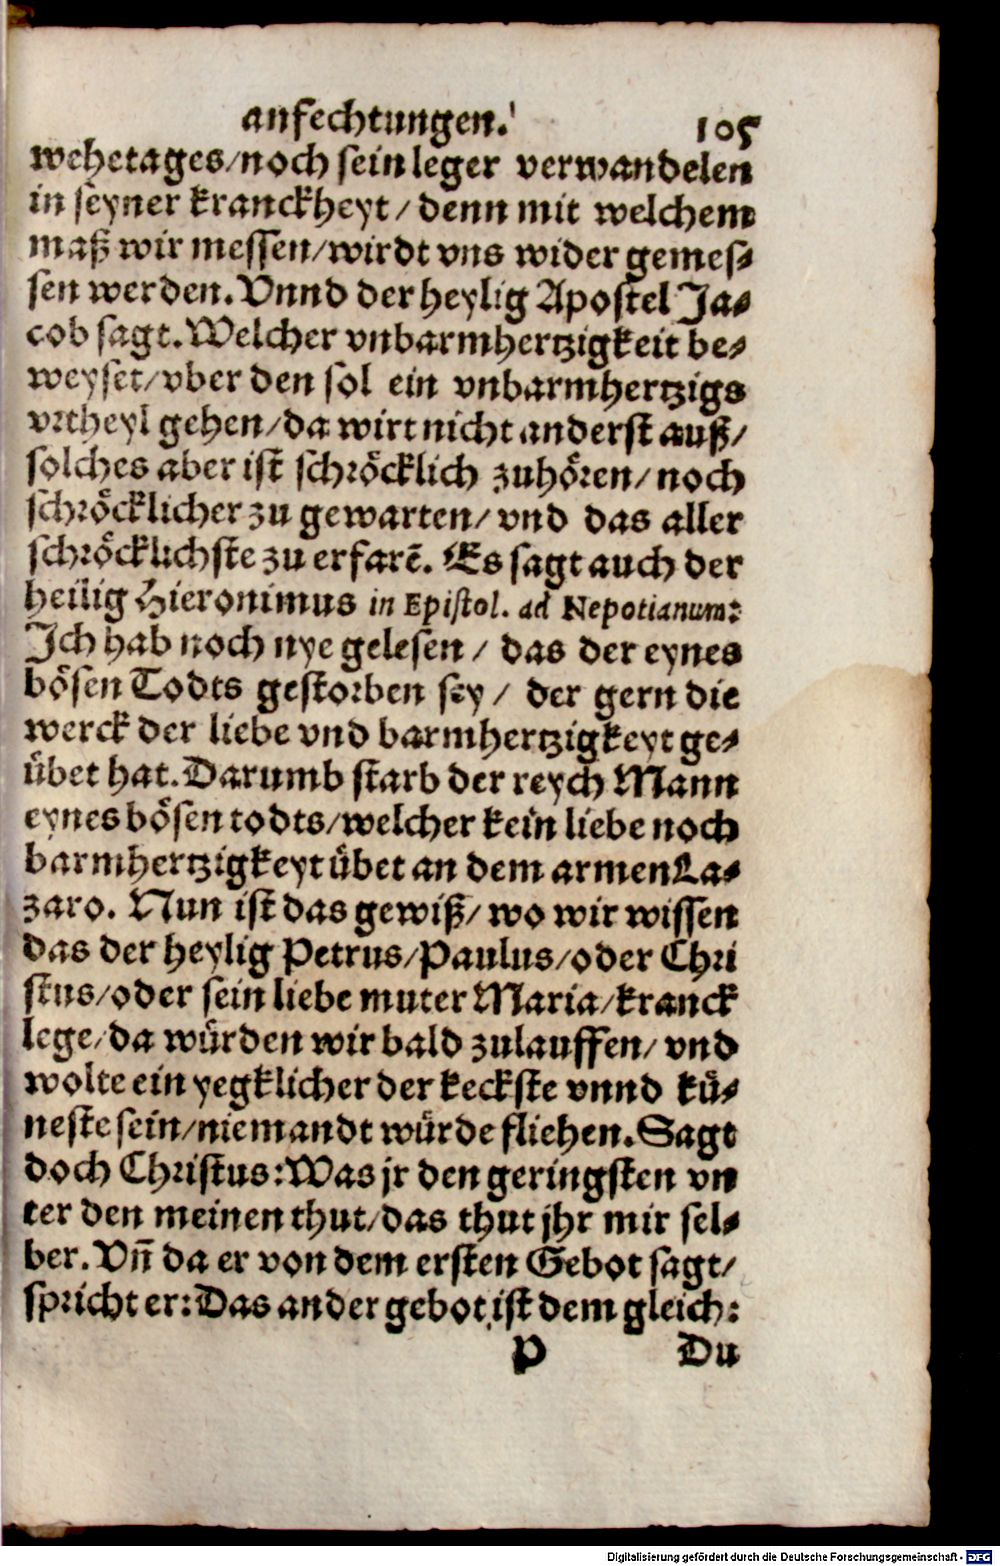 anfechtungen. 105
wehetages/noch sein leger verwandelen
in seyner kranckheyt/ denn mit welchem
maß wir messen/wirdt vns wider gemes-
sen werden. Vnnd der heylig Apostel Ja-
cob sagt. Welcher vnbarmhertzigkeit be-
weyset/vber den sol ein vnbarmhertzigs
vrtheyl gehen/da wirt nicht anderst auß/
solches aber ist schröcklich zuhören/noch
schröcklicher zu gewarten/vnd das aller
schröcklichste zu erfarẽ. Es sagt auch der
heilig Hieronimus in Epistol. ad Nepotianum:
Ich hab noch nye gelesen/ das der eynes
bösen Todts gestorben sey/ der gern die
werck der liebe vnd barmhertzigkeyt ge-
übet hat. Darumb starb der reych Mann
eynes bösen todts/welcher kein liebe noch
barmhertzigkeyt übet an dem armen La-
zaro. Nun ist das gewiß/wo wir wissen
das der heylig Petrus/Paulus/oder Chri
stus/oder sein liebe muter Maria/kranck
lege/da würden wir bald zulauffen/vnd
wolte ein yegklicher der keckste vnnd kü-
neste sein/niemandt würde fliehen. Sagt
doch Christus: Was jr den geringsten vn
ter den meinen thut/das thut jhr mir sel-
ber. Vñ da er von dem ersten Gebot sagt/
spricht er: Das ander gebot ist dem gleich:
P Du
Digitalisierung gefördert durch die Deutsche Forschungsgemeinschaft - DFG